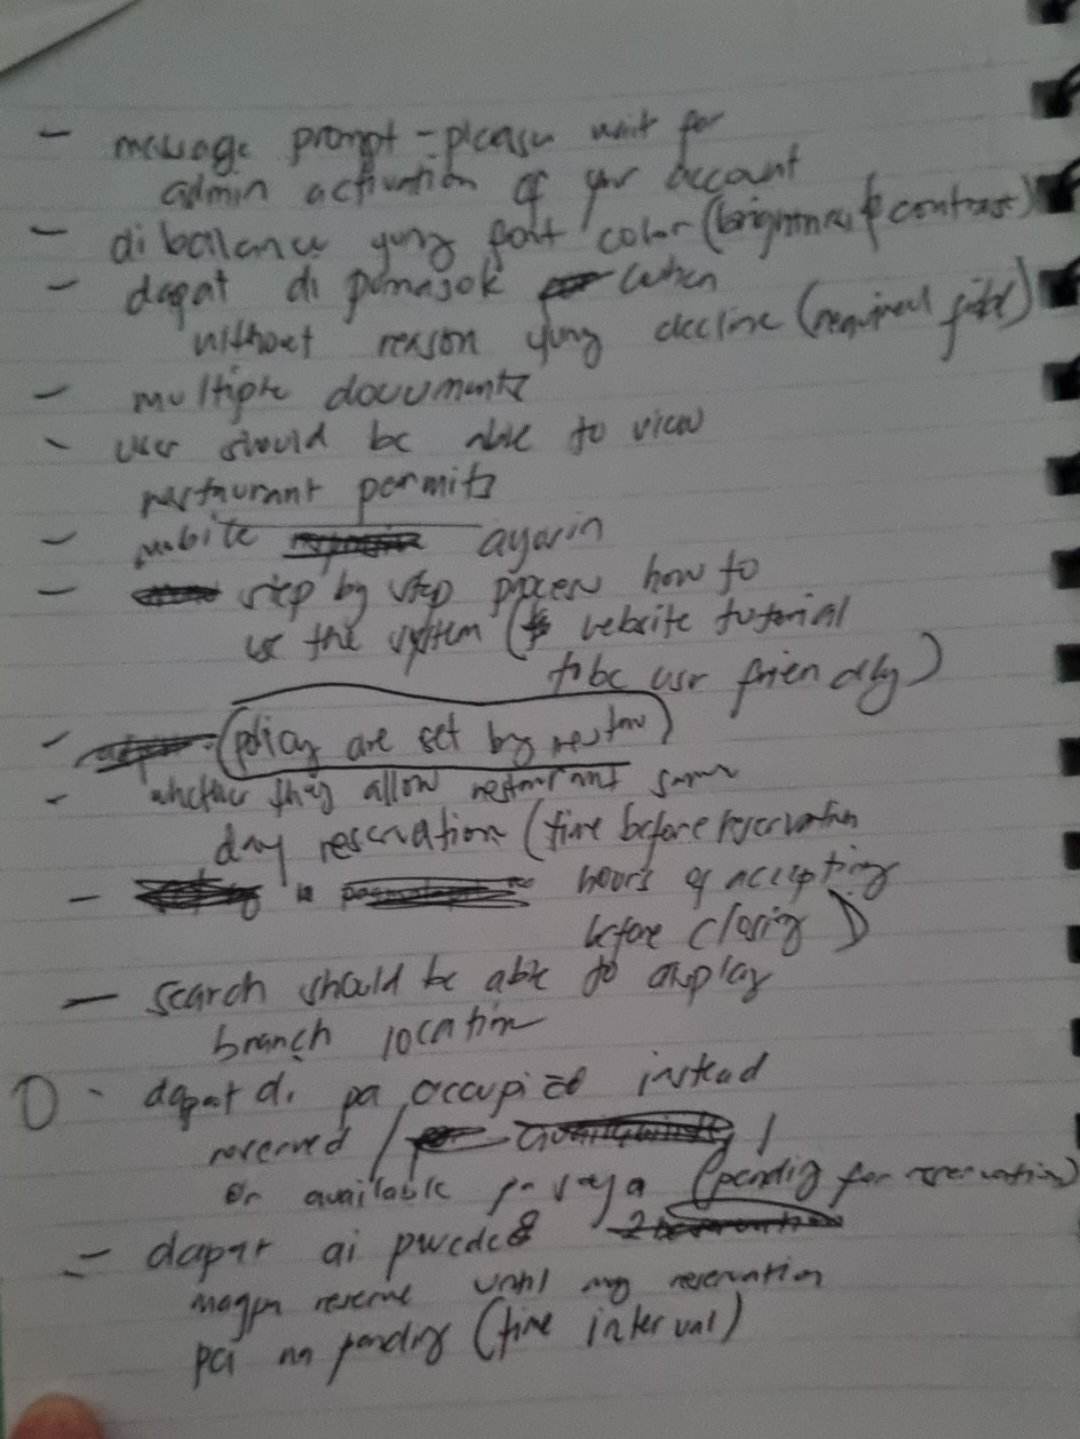 - message prompt - please wait for
admin activation of your account
- di balance yung font color (brightness & contrast)
- dapat di pumasok when
without reason yung decline (required field)
- multiple documents
- user should be able to view
restaurant permits
- mobile ayusin
- step by step process how to
use the system ( website tutorial
to be user friendly)
- (policy are set by restau)
- whether they allow restaurant same
day reservation (time before reservation
- hours of accepting
before closing)
- search should be able to display
branch location
- dapat di pa occupied instead
reserved /
or available pa sya (pending for reservation)
- dapat di pwede
magpa reserve until my reservation
pa na pending (time interval)